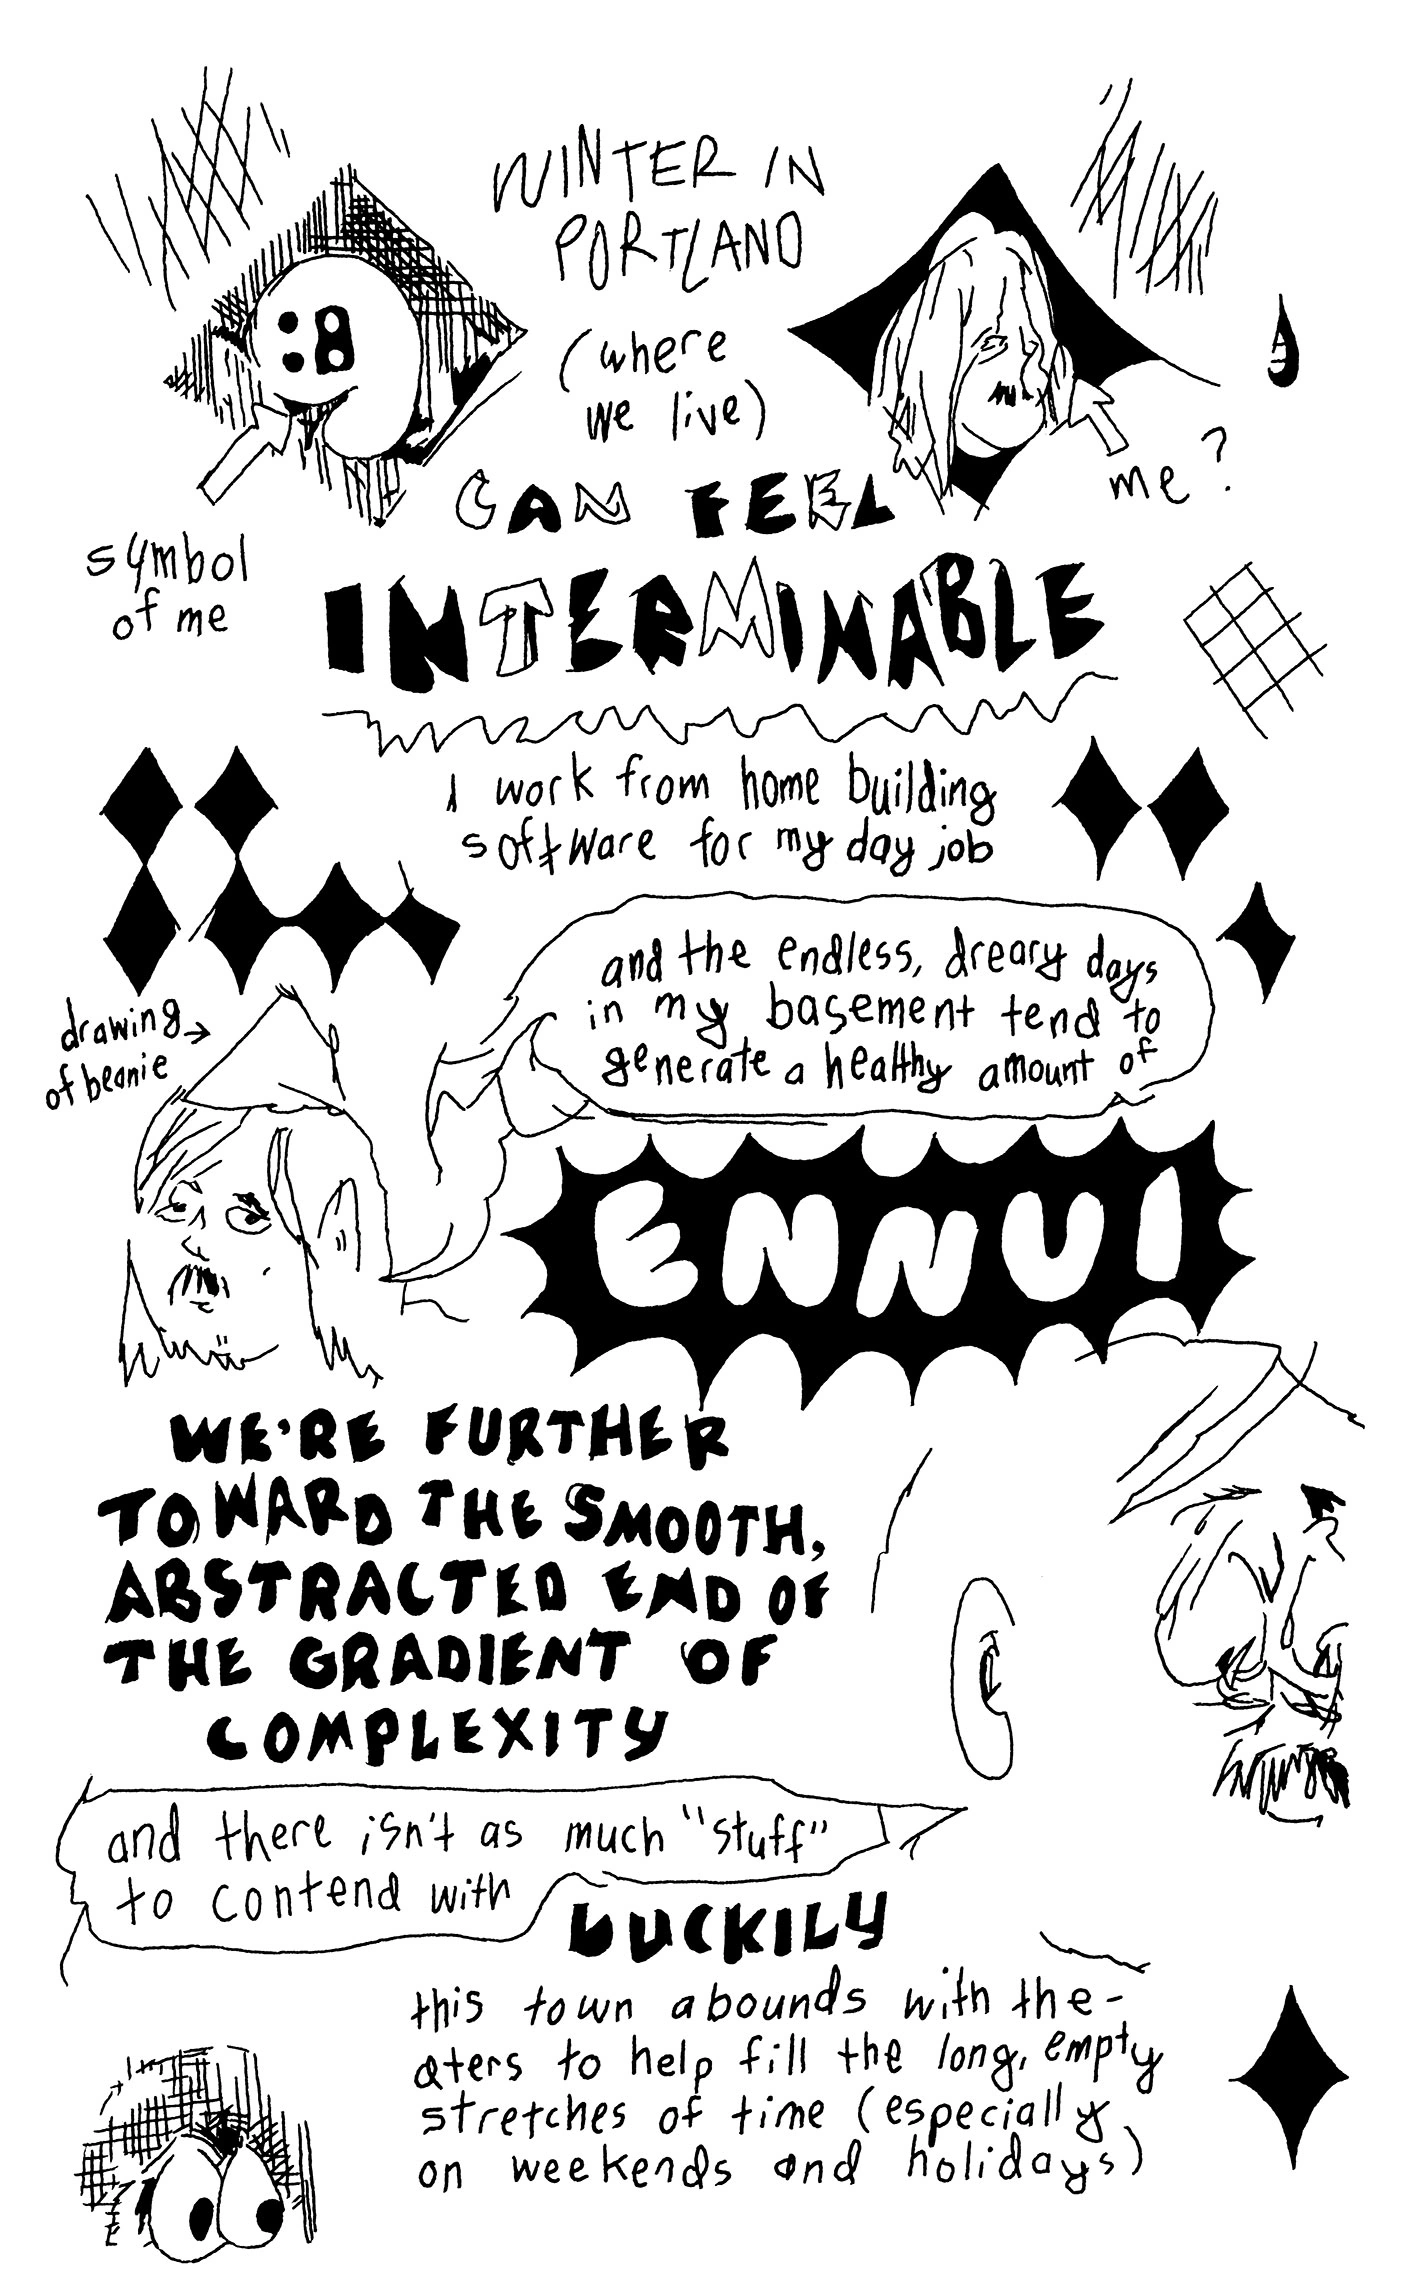 WINTER IN
PORTLAND
(where
we live)
me?
CAN FEEL
symbol
of me
INTERMINABLE
I work from home building
software for my day job
and the endless, dreary days
in my basement tend to
generate a healthy amount of
drawing →
of beanie
ENNUI
WE'RE FURTHER
TOWARD THE SMOOTH,
ABSTRACTED END OF
THE GRADIENT OF
COMPLEXITY
and there isn't as much "stuff"
to contend with
LUCKILY
this town abounds with the-
aters to help fill the long, empty
stretches of time (especially
on weekends and holidays)